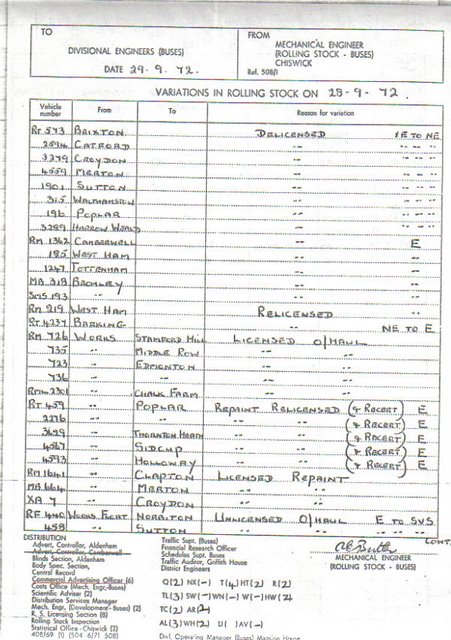 TO
DIVISIONAL ENGINEERS (BUSES)
DATE 29.9.72.
FROM
MECHANICAL ENGINEER
(ROLLING STOCK - BUSES)
CHISWICK
Ref. 508/1
VARIATIONS IN ROLLING STOCK ON 28-9-72.
Vehicle number From To Reason for variation
RT.573 BRIXTON DELICENSED E TO NE
2594 CATFORD -- -- -- --
3279 CROYDON -- -- -- --
4559 MERTON -- -- -- --
1901 SUTTON -- -- -- --
315 WALTHAMSTOW -- -- -- --
196 POPLAR -- -- -- --
3289 HARROW WEALD -- -- -- --
RM.1362 CAMBERWELL -- E
185 WEST HAM -- --
1247 TOTTENHAM -- --
MB.318 BROMLEY -- --
SMS.193 -- -- --
RM.219 WEST HAM RELICENSED --
RT.4237 BARKING -- NE TO E
RM.726 WORKS STAMFORD HILL LICENSED O/HAUL
735 -- MIDDLE ROW -- --
723 -- EDMONTON -- --
736 -- -- -- --
RML.2301 -- CHALK FARM -- --
RT.459 -- POPLAR REPAINT RELICENSED (& RECERT) E
2276 -- -- -- -- (& RECERT) E
3629 -- THORNTON HEATH -- -- (& RECERT) E
4567 -- SIDCUP -- -- (& RECERT) E
4593 -- HOLLOWAY -- -- (& RECERT) E
RM.1641 -- CLAPTON LICENSED REPAINT
MB.664 -- MERTON -- --
XA 7 -- CROYDON -- --
RF.440 WORKS FLOAT NORBITON UNLICENSED O/HAUL E TO SVS
458 -- SUTTON -- -- --
CONT.
DISTRIBUTION
Advert. Controller, Aldenham
Advert. Controller, Camberwell
Blinds Section, Aldenham
Body Spec. Section,
Central Record
Commercial Advertising Officer (6)
Costs Office (Mech. Engr.-Buses)
Scientific Adviser (2)
Distribution Services Manager
Mech. Engr. (Development - Buses) (2)
R. S. Licensing Section (8)
Rolling Stock Inspection
Statistical Office (2)
408/69 (1) (504 6/71 508)
Traffic Supt. (Buses)
Financial Research Officer
Schedules Supt. Buses
Traffic Auditor, Griffith House
District Engineers
Q(2) NX(-) T(4) HT(2) R(2)
TL(3) SW(-) WN(-) W(-) HW(2)
TC(2) AR(2)
AL(3) WH(2) U( ) AV(-)
Divl. Operating Manager (Buses) Mansion House
MECHANICAL ENGINEER
(ROLLING STOCK - BUSES)